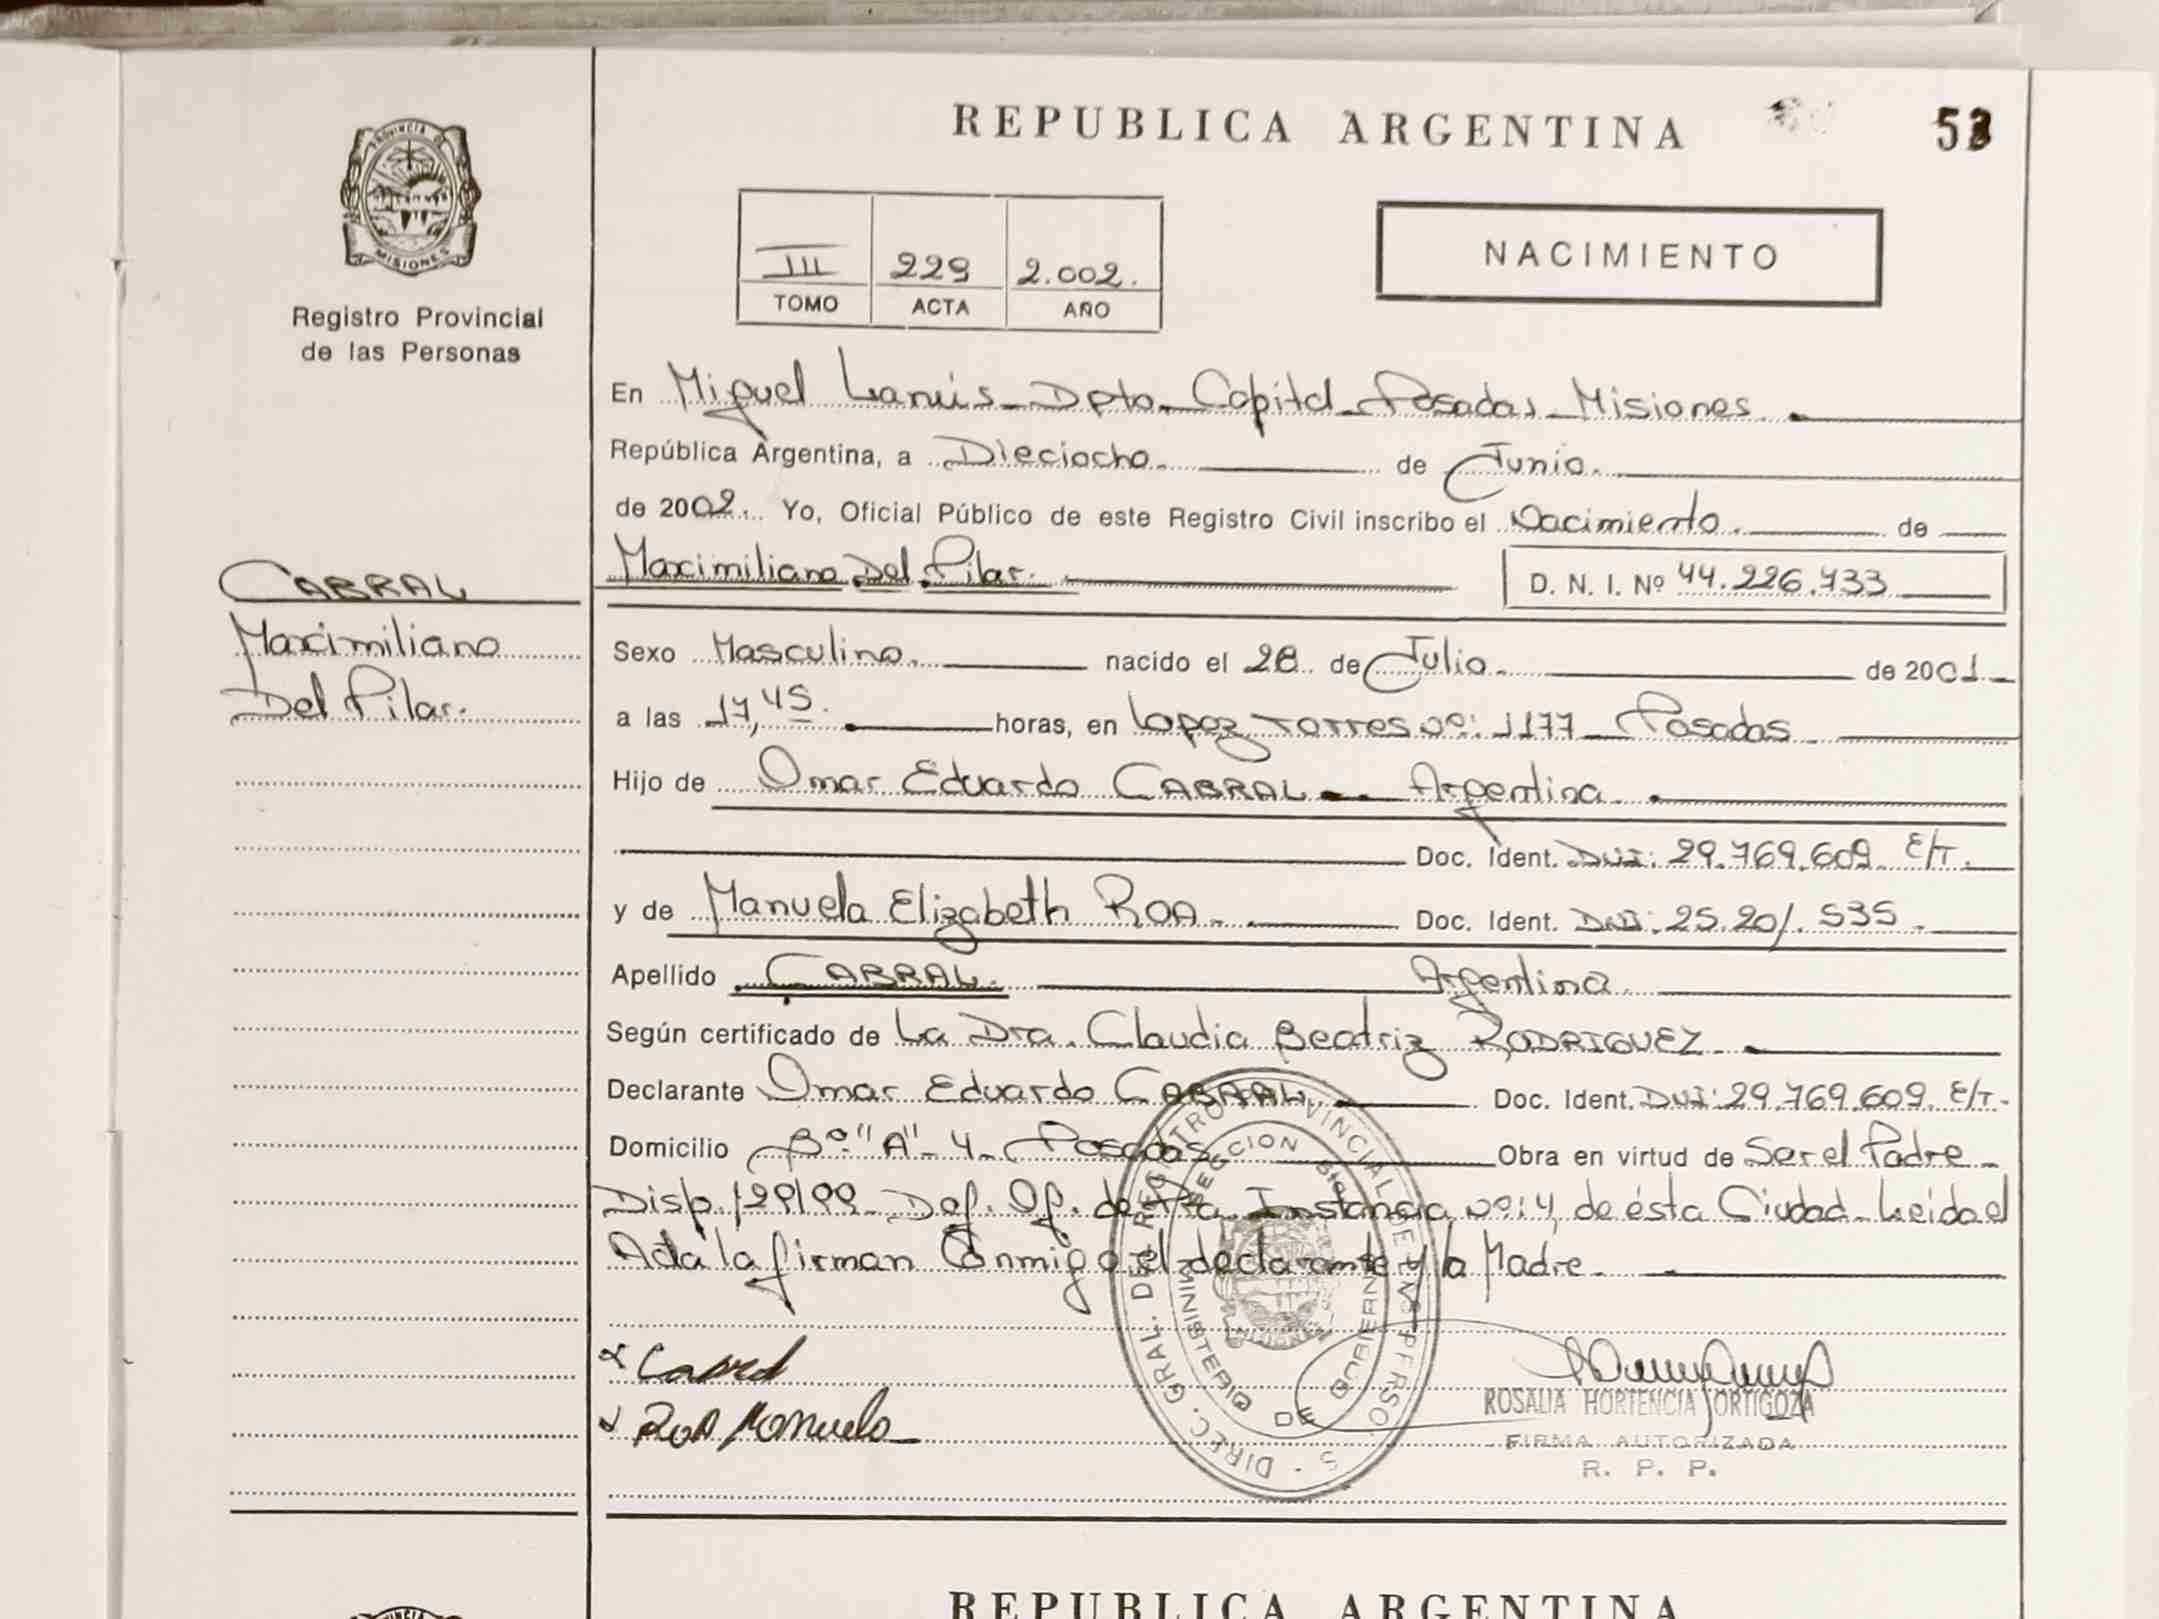 REPUBLICA ARGENTINA
PROVINCIA DE
MISIONES
Registro Provincial
de las Personas
III 229 2.002.
TOMO ACTA AÑO
NACIMIENTO
En Miguel Lanús - Dpto - Capital - Posadas - Misiones.
República Argentina, a Dieciocho. de Junio.
de 2002. Yo, Oficial Público de este Registro Civil inscribo el Nacimiento. de
Maximiliano Del Pilar. D. N. I. Nº 44.226.733
CABRAL
Maximiliano
Del Pilar.
Sexo Masculino. nacido el 28 de Julio. de 2001
a las 17,45. horas, en Lopez Torres Nº: 1177 - Posadas
Hijo de Omar Eduardo CABRAL - Argentina.
Doc. Ident. DNI: 29.769.609 E/T.
y de Manuela Elizabeth ROA. Doc. Ident. DNI: 25.201.535.
Apellido CABRAL. Argentina.
Según certificado de La Dra. Claudia Beatriz RODRIGUEZ.
Declarante Omar Eduardo CABRAL. Doc. Ident. DNI: 29.769.609 E/T.
Domicilio Bº "A" - 4 - Posadas. Obra en virtud de Ser el Padre -
Disp. 129/99 - Def. Of. de 1ra Instancia Nº: 4, de ésta Ciudad - Leida el
Acta la firman Conmigo el declarante y la Madre.
Cabral
Roa Manuela
ROSALIA HORTENCIA ORTIGOZA
FIRMA AUTORIZADA
R. P. P.
DIREC. GRAL. DEL REGISTRO PROVINCIAL DE LAS PERSO
MINISTERIO DE GOBIERN
REPUBLICA ARGENTINA